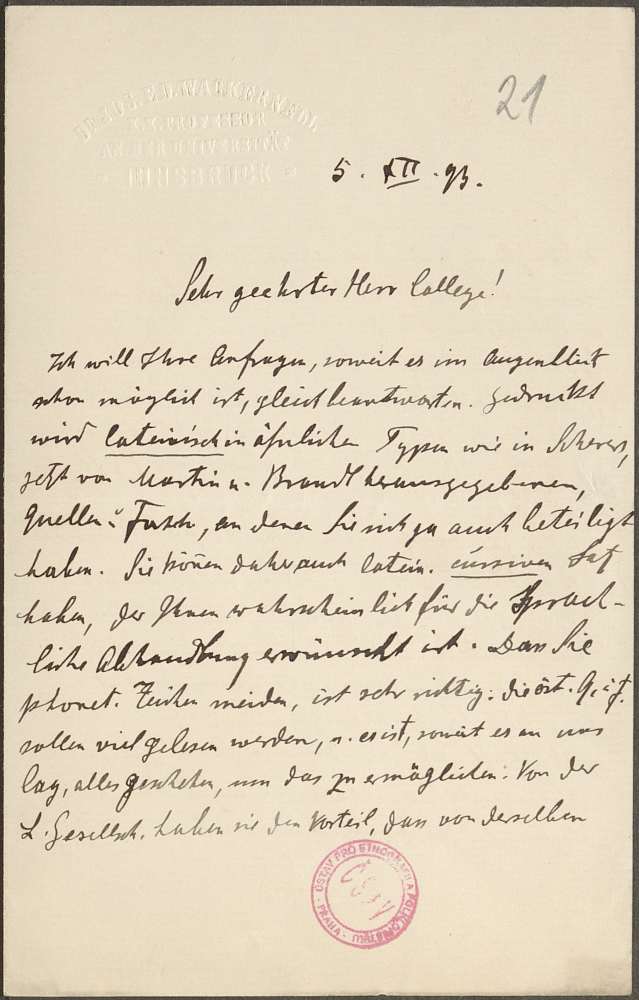 21
K. K. PROFESSOR
AN DER UNIVERSITÄT
INNSBRUCK
5. XII. 93.
Sehr geehrter Herr College!
Ich will Ihre Anfragen, soweit es im Augenblick
schon möglich ist, gleich beantworten. Gedruckt
wird lateinisch in ähnlichen Typen wie in Scherers,
jetzt von Martin u. Brandl herausgegebenen,
Quellen u. Forsch., an denen Sie sich ja auch beteiligt
haben. Sie können daher auch latein. cursiven Satz
haben, der Ihnen wahrscheinlich für die sprach-
liche Abhandlung erwünscht ist. Dass Sie
phonet. Zeichen meiden, ist sehr richtig: die öst.
sollen viel gelesen werden, u. es ist, soweit es an uns
lag, alles geschehen, um das zu ermöglichen. Von der
L. Gesellsch. haben sie den Vorteil, dass von derselben
ÚSTAV PRO ETNOGRAFII A FOLKLORISTIKU
PRAHA